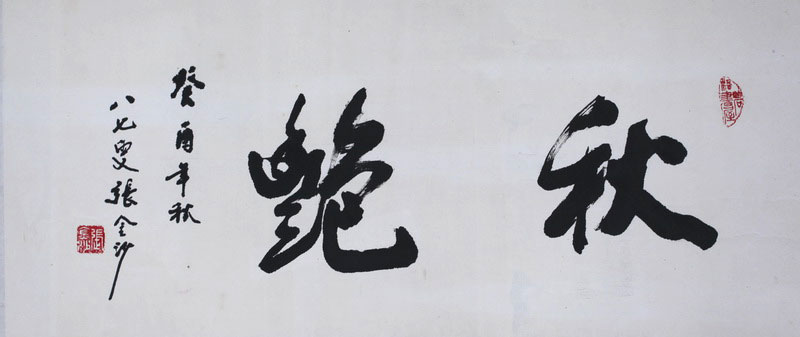 秋艷
癸酉年秋
八七叟張金沙